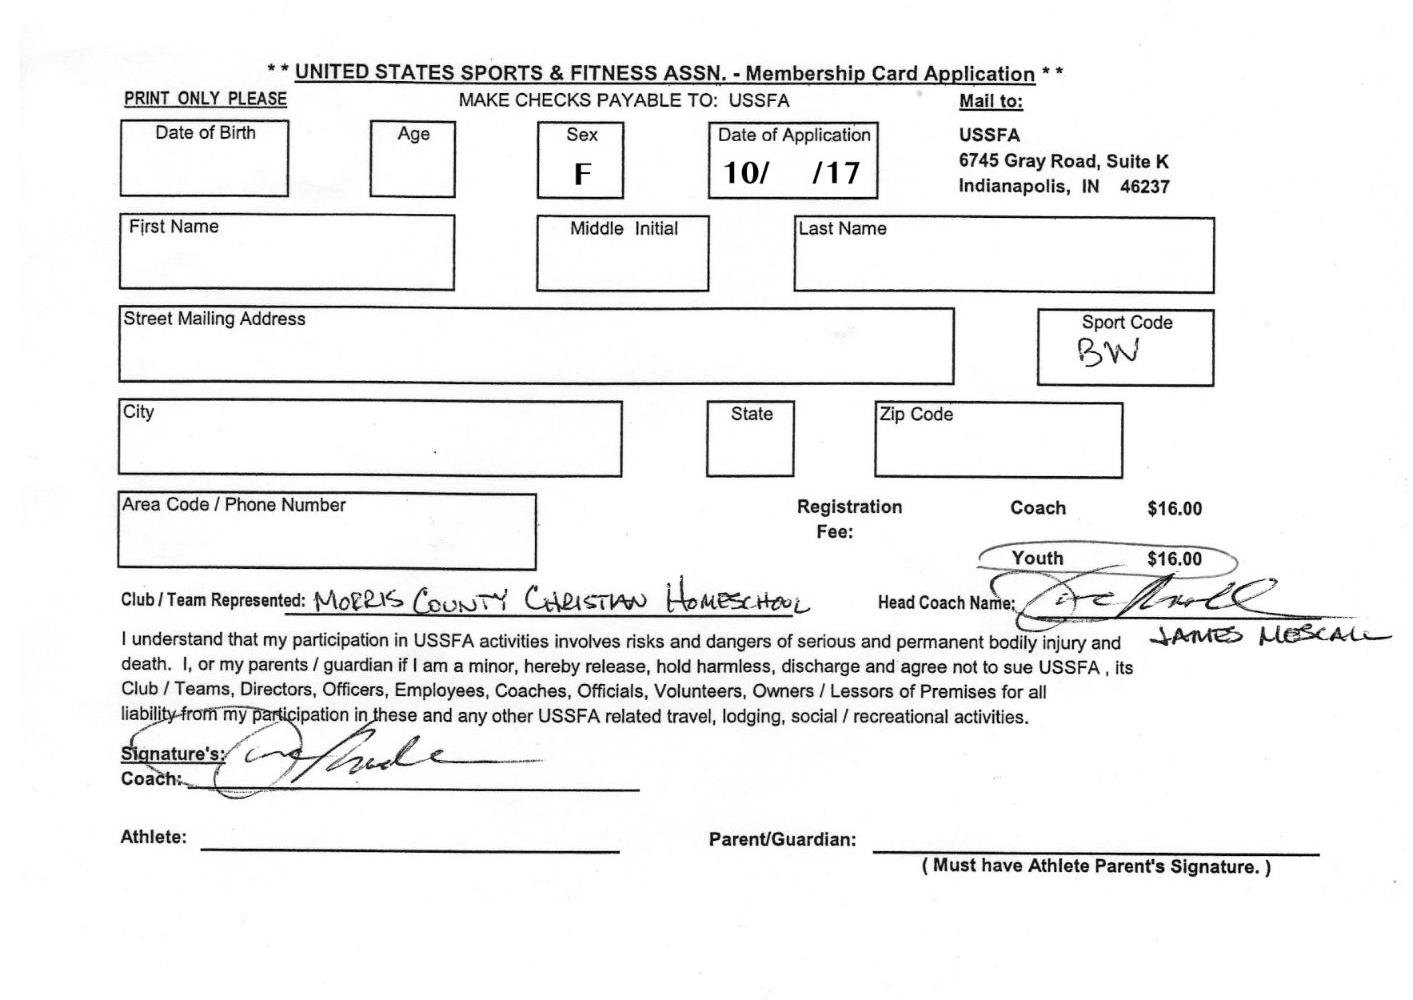 * * UNITED STATES SPORTS & FITNESS ASSN. - Membership Card Application * *
PRINT ONLY PLEASE
MAKE CHECKS PAYABLE TO: USSFA
Mail to:
Date of Birth
Age
Sex
F
Date of Application
10/ /17
USSFA
6745 Gray Road, Suite K
Indianapolis, IN 46237
First Name
Middle Initial
Last Name
Street Mailing Address
Sport Code
BW
City
State
Zip Code
Area Code / Phone Number
Registration Fee:
Coach $16.00
Youth $16.00
Club / Team Represented: MORRIS COUNTY CHRISTIAN HOMESCHOOL
Head Coach Name:
JAMES MESCALL
I understand that my participation in USSFA activities involves risks and dangers of serious and permanent bodily injury and
death. I, or my parents / guardian if I am a minor, hereby release, hold harmless, discharge and agree not to sue USSFA , its
Club / Teams, Directors, Officers, Employees, Coaches, Officials, Volunteers, Owners / Lessors of Premises for all
liability from my participation in these and any other USSFA related travel, lodging, social / recreational activities.
Signature's:
Coach:
Athlete:
Parent/Guardian:
( Must have Athlete Parent's Signature. )